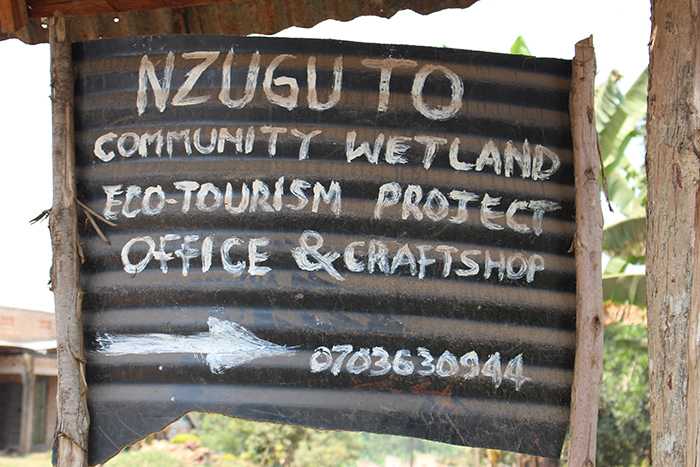 NZUGU TO
COMMUNITY WETLAND
ECO-TOURISM PROJECT
OFFICE & CRAFTSHOP
0703630944